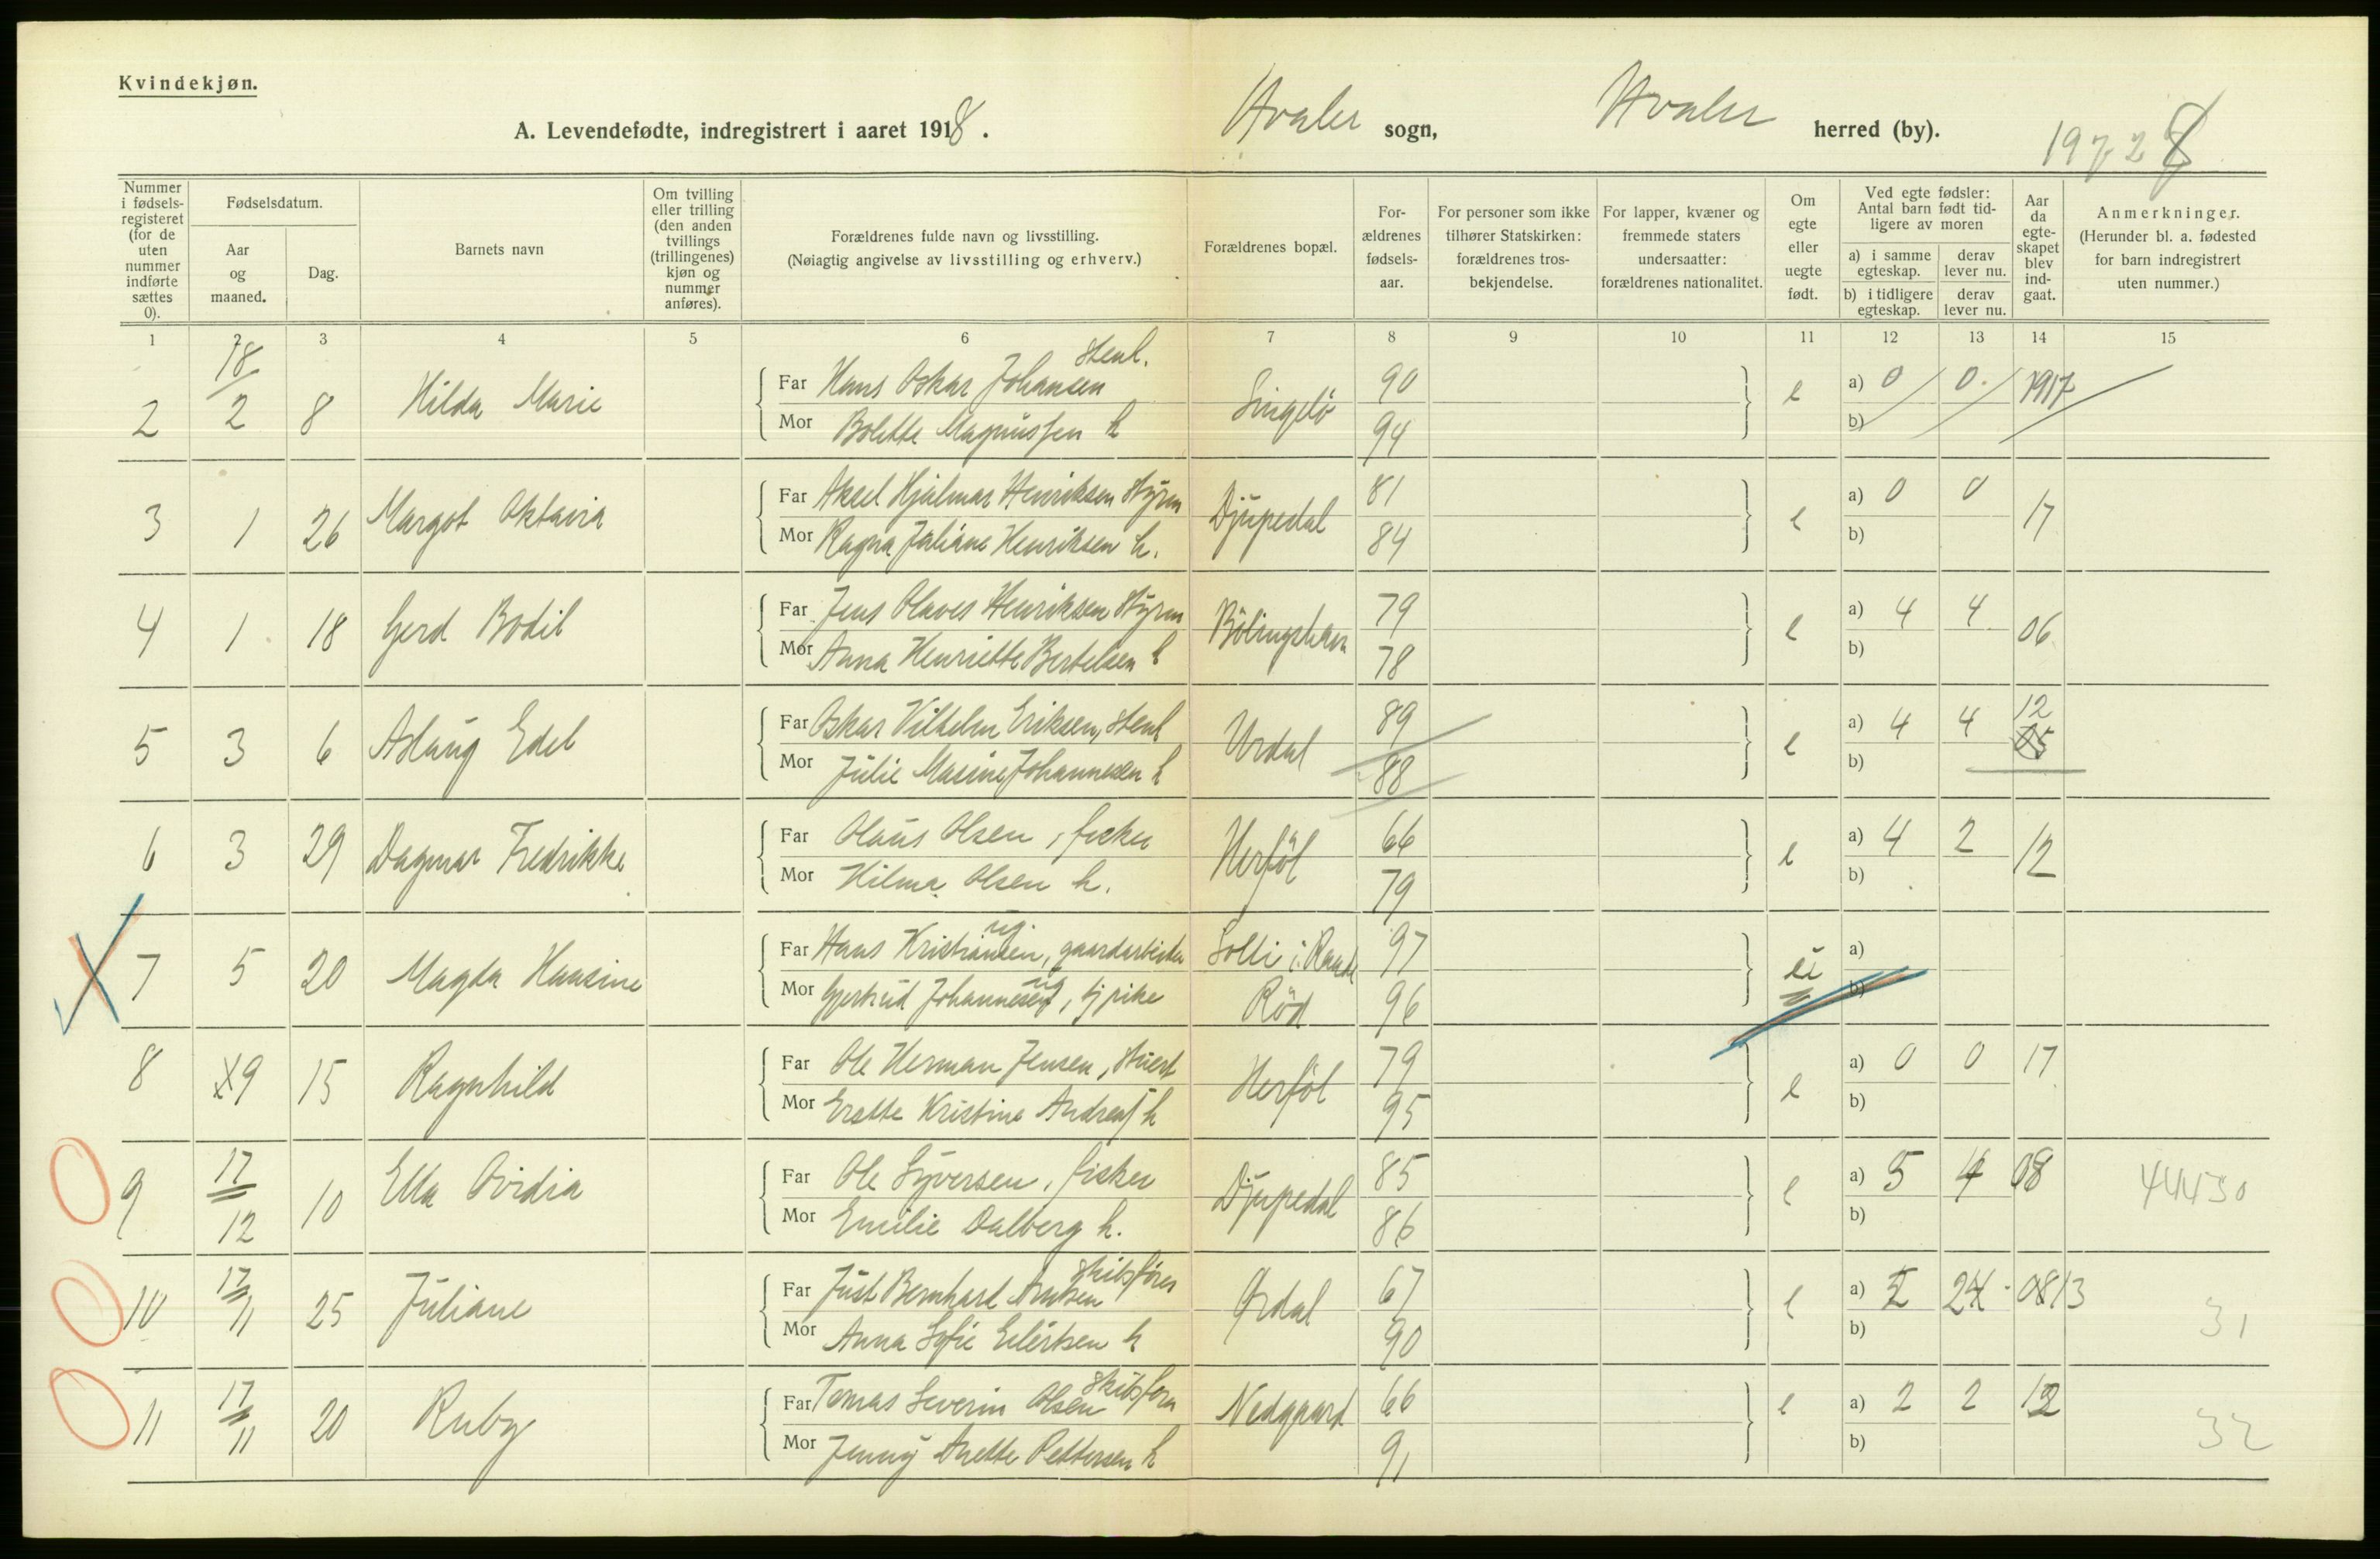 Kvindekjøn.
A. Levendefødte, indregistrert i aaret 1918. Hvaler sogn, Hvaler herred (by).
1972 8
Nummer i fødsels-registeret (for de uten nummer indførte sættes 0).
Fødselsdatum.
Aar og maaned.
Dag.
Barnets navn
Om tvilling eller trilling (den anden tvillings (trillingenes) kjøn og nummer anføres).
Forældrenes fulde navn og livsstilling.
(Nøiagtig angivelse av livsstilling og erhverv.)
Forældrenes bopæl.
For-ældrenes fødsels-aar.
For personer som ikke tilhører Statskirken: forældrenes tros-bekjendelse.
For lapper, kvæner og fremmede staters undersaatter: forældrenes nationalitet.
Om egte eller uegte født.
Ved egte fødsler: Antal barn født tid-ligere av moren
a) i samme egteskap.
derav lever nu.
b) i tidligere egteskap.
derav lever nu.
Aar da egte-skapet blev ind-gaat.
Anmerkninger.
(Herunder bl. a. fødested for barn indregistrert uten nummer.)
1 2 3 4 5 6 7 8 9 10 11 12 13 14 15
2 18/2 8 Hilda Marie Far Hans Oskar Johansen stenh. Singelö 90 e a) 0 0 1917
Mor Bolette Magnussen h 94 b)
3 1 26 Margot Oktavia Far Aksel Hjalmar Henriksen Styrm Djupedal 81 e a) 0 0 17
Mor Ragna Juliane Henriksen h. 84 b)
4 1 18 Gerd Bodil Far Jens Olaves Henriksen Styrm Bölingshavn 79 e a) 4 4 06
Mor Anna Henriette Bertelsen h 78 b)
5 3 6 Aslaug Edel Far Oskar Vilhelm Eriksen, stenh Urdal 89 e a) 4 4 12 05
Mor Julie Masine Johannesen h 88 b)
6 3 29 Dagmar Fredrikke Far Olaus Olsen, fisker Herföl 66 e a) 4 2 12
Mor Hilma Olsen h. 79 b)
7 5 20 Magda Hansine Far Hans Kristiansen, ug. gaardarbeider Solli i 97 u a)
Mor Gjertrud Johannesen ug, tj pike Röd 96 b)
8 9 15 Ragnhild Far Ole Herman Jensen, Stuert Herföl 79 e a) 0 0 17
Mor Kristine h 95 b)
9 17/12 10 Ella Ovidia Far Ole Syversen, fisker Djupedal 85 e a) 5 4 08 44430
Mor Emilie Dalberg h. 86 b)
10 17/11 25 Juliane Far Just Bernhard Arntsen skibsförer Ördal 67 e a) 2 2 0813 31
Mor Anna Sofie Eilertsen h 90 b)
11 17/11 20 Ruby Far Tomas Severin Olsen skibsförer Nedgaard 66 e a) 2 2 12 32
Mor Jenny Anette Pettersen h 91 b)